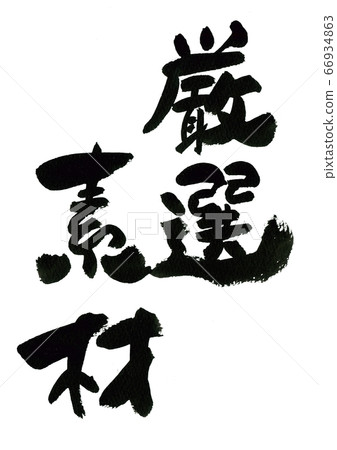 厳選
素材
PIXTA
66934863